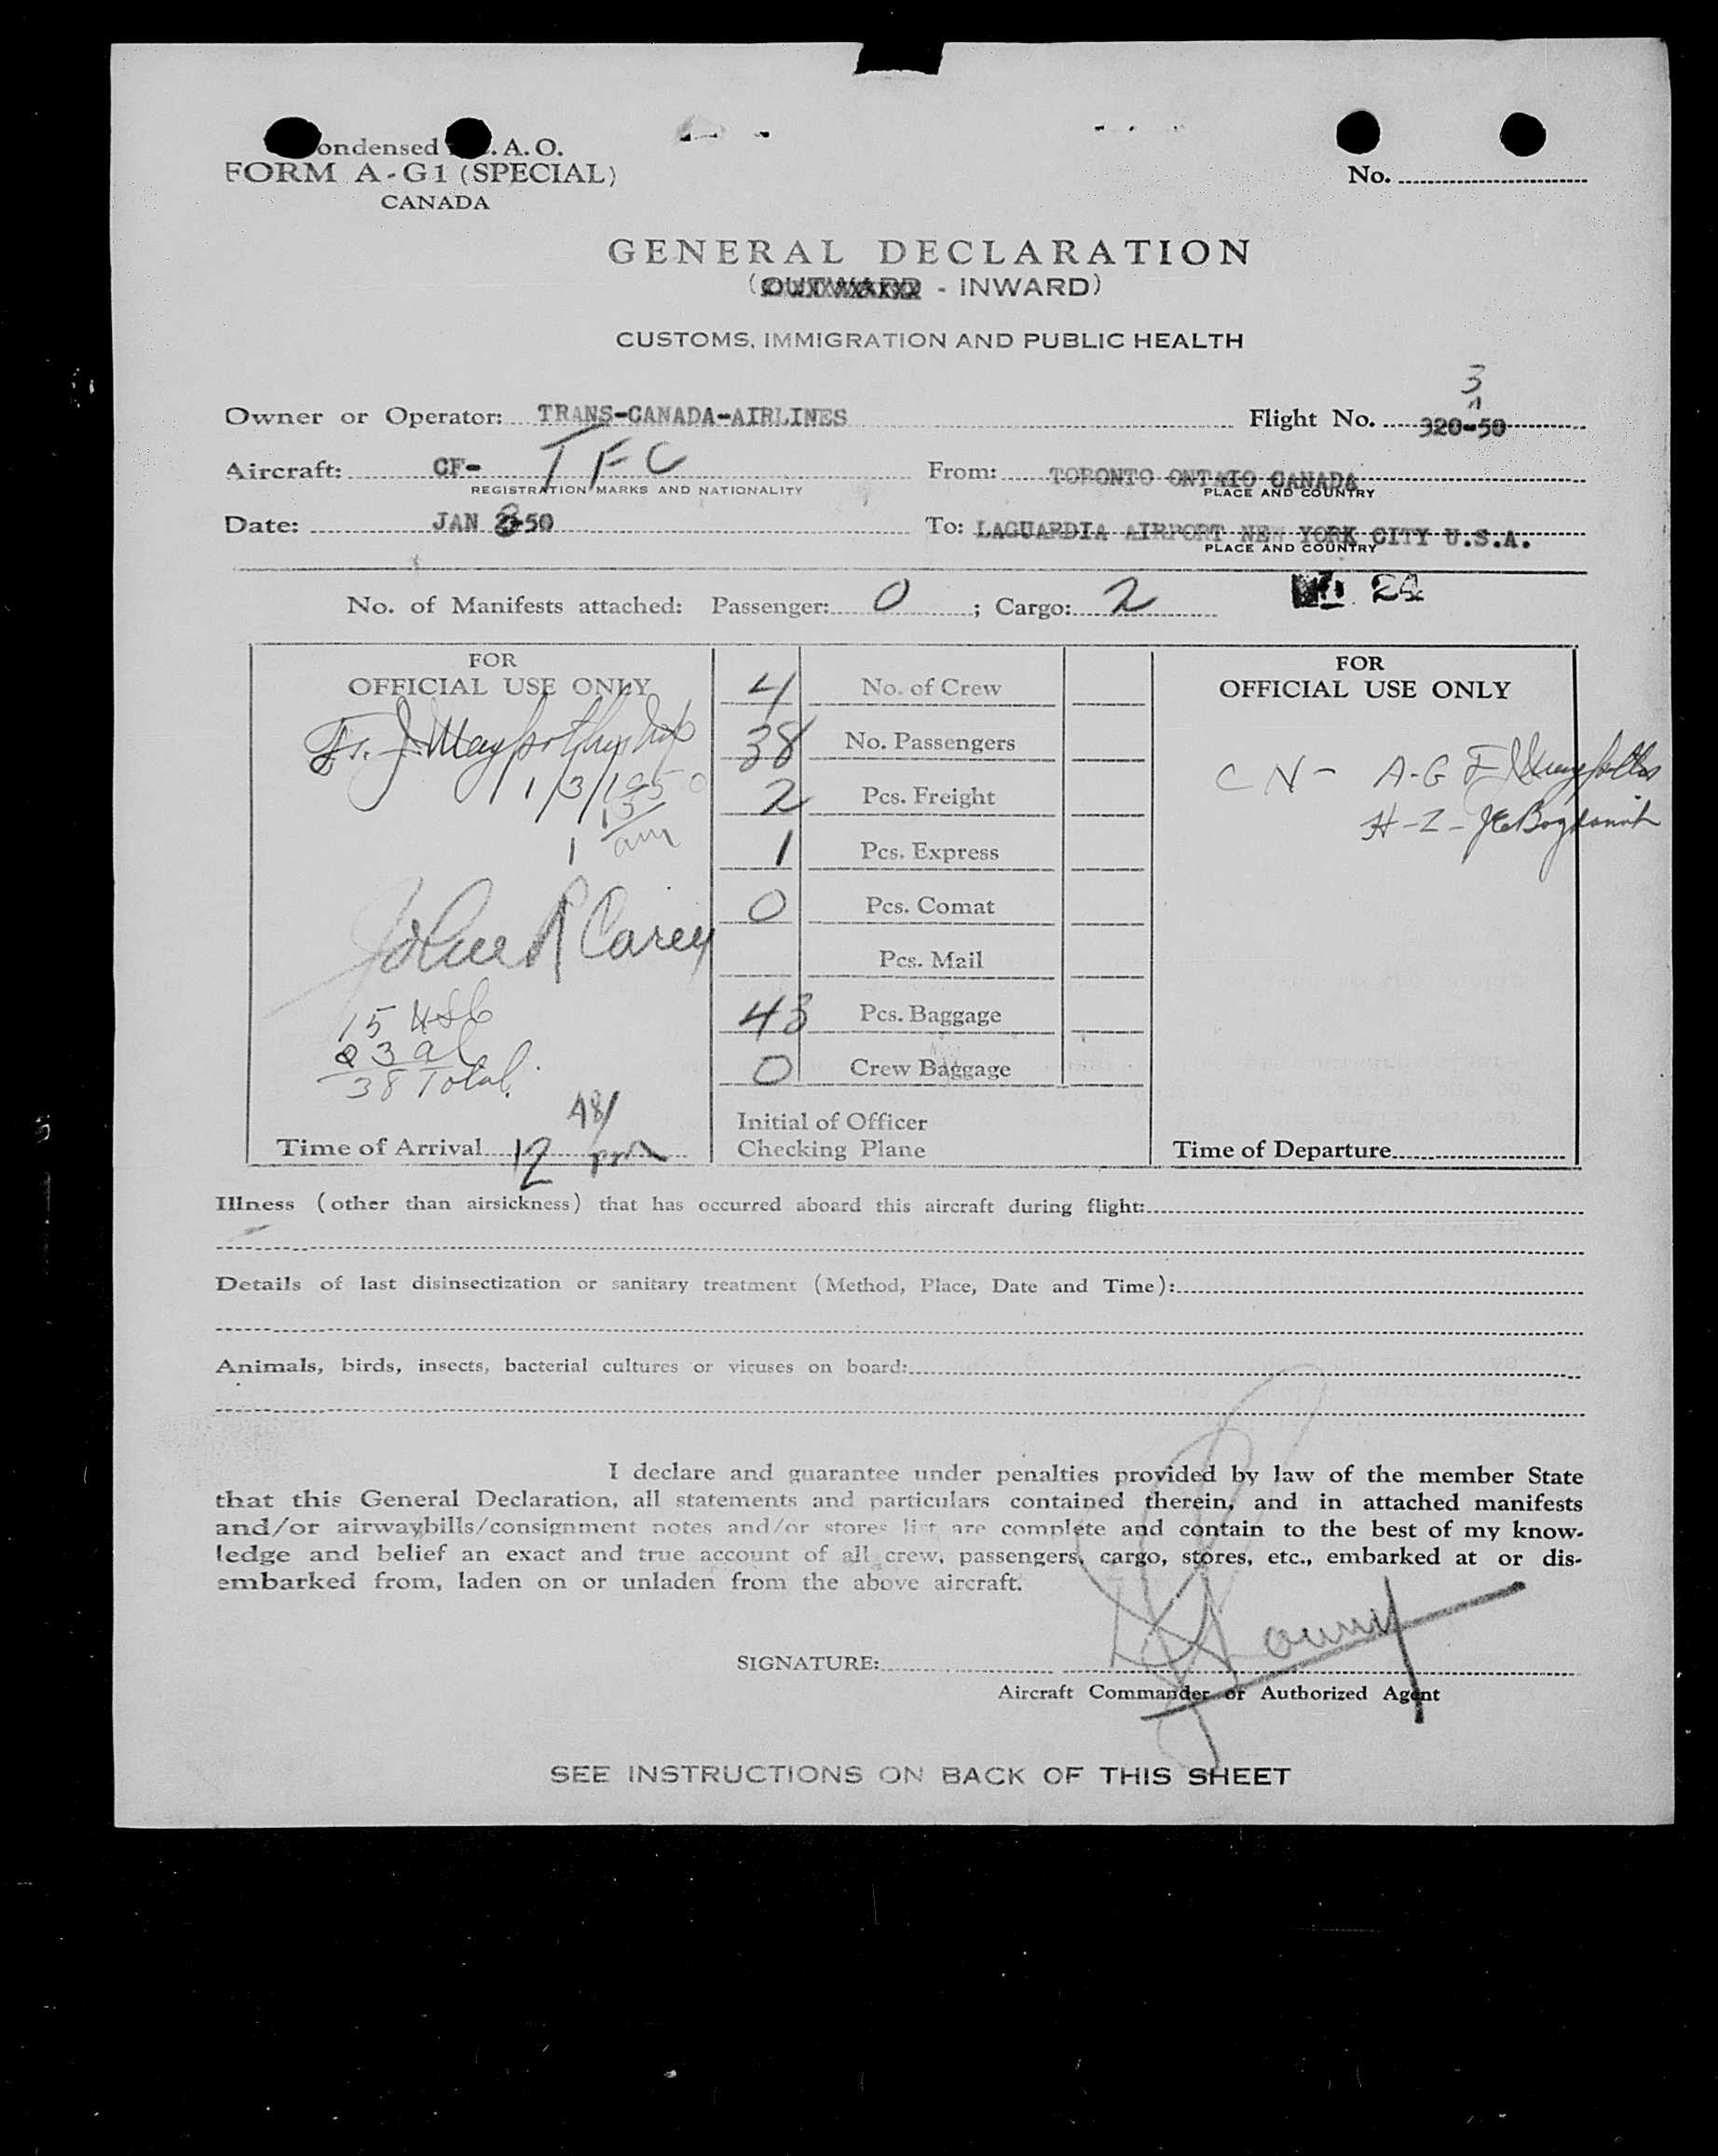 ondensed . A. O.
FORM A-G1 (SPECIAL)
CANADA
No.
GENERAL DECLARATION
(OUTWARD - INWARD)
CUSTOMS, IMMIGRATION AND PUBLIC HEALTH
3
Owner or Operator: TRANS-CANADA-AIRLINES Flight No. 320-50
Aircraft: CF- TFC From: TORONTO ONTAIO CANADA
REGISTRATION MARKS AND NATIONALITY PLACE AND COUNTRY
Date: JAN 3-50 To: LAGUARDIA AIRPORT NEW YORK CITY U.S.A.
PLACE AND COUNTRY
24
No. of Manifests attached: Passenger: 0 ; Cargo: 2
FOR
OFFICIAL USE ONLY
1/3/1950
1 15
am
John R Carey
15 USC
23 al
38 Total.
48
Time of Arrival 12 pm
4 No. of Crew
38 No. Passengers
2 Pcs. Freight
1 Pcs. Express
0 Pcs. Comat
Pcs. Mail
43 Pcs. Baggage
0 Crew Baggage
Initial of Officer
Checking Plane
FOR
OFFICIAL USE ONLY
CN- A-G F J
H-Z-
Time of Departure
Illness (other than airsickness) that has occurred aboard this aircraft during flight:
Details of last disinsectization or sanitary treatment (Method, Place, Date and Time):
Animals, birds, insects, bacterial cultures or viruses on board:
I declare and guarantee under penalties provided by law of the member State
that this General Declaration, all statements and particulars contained therein, and in attached manifests
and/or airwaybills/consignment notes and/or stores list are complete and contain to the best of my know-
ledge and belief an exact and true account of all crew, passengers, cargo, stores, etc., embarked at or dis-
embarked from, laden on or unladen from the above aircraft.
SIGNATURE:
Aircraft Commander or Authorized Agent
SEE INSTRUCTIONS ON BACK OF THIS SHEET